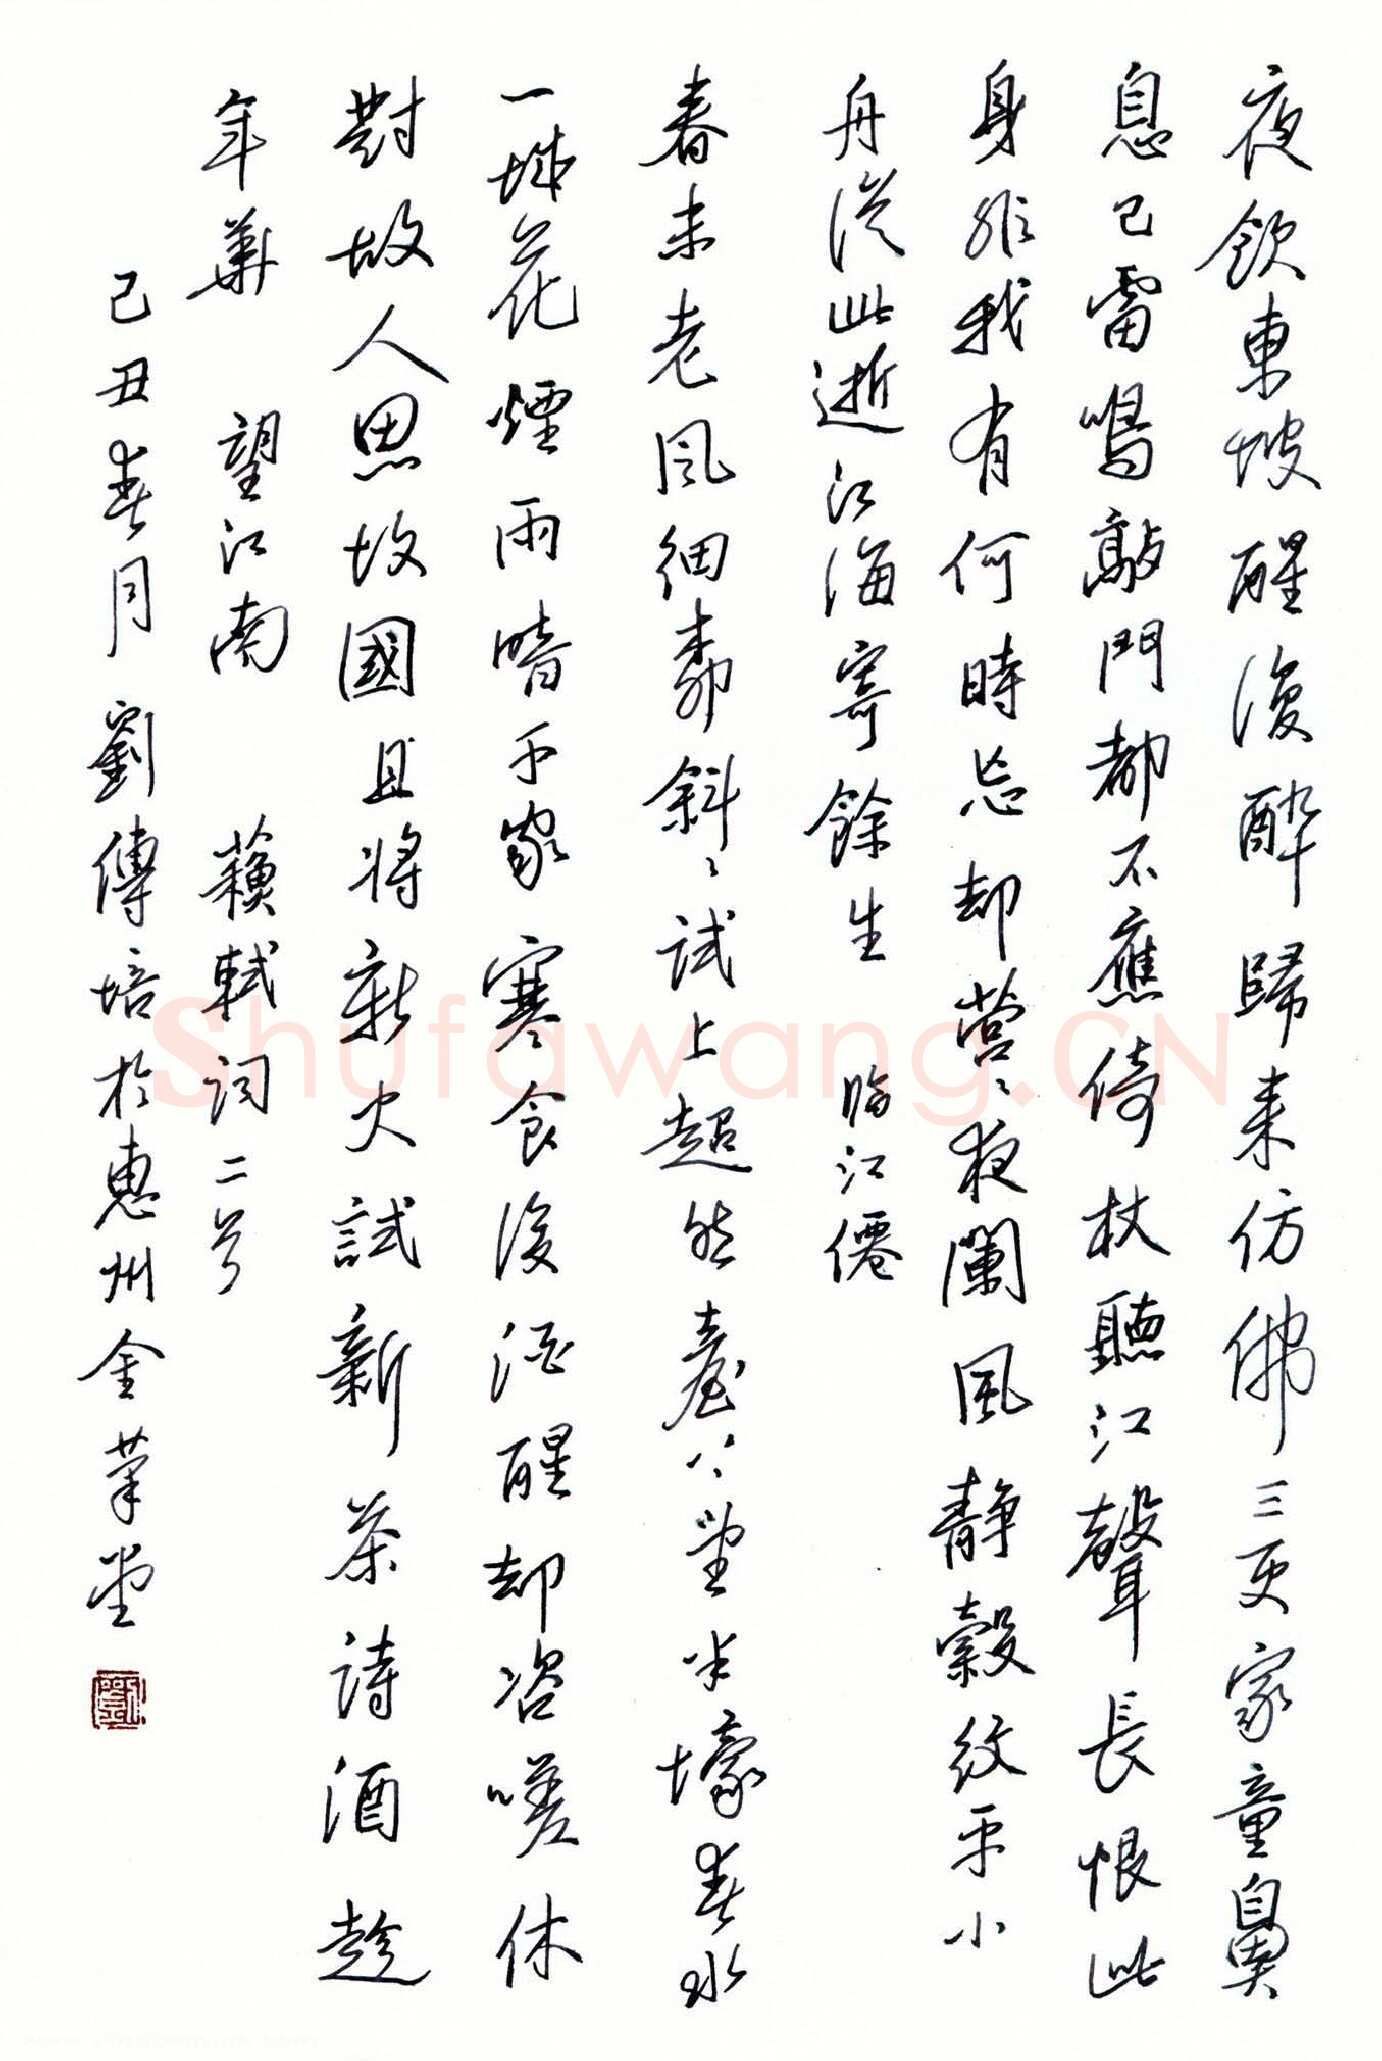 夜飲東坡醒復醉歸来仿佛三更家童鼻
息已雷鳴敲門都不應倚杖聽江聲長恨此
身非我有何時忘却營〻夜闌風靜縠紋平小
舟從此逝江海寄餘生 臨江僊
春未老風細柳斜〻試上超然臺上望半壕春水
一城花煙雨暗千家寒食後酒醒却咨嗟休
對故人思故國且將新火試新茶詩酒趁
年華 望江南 蘇軾詞二首
己丑春月劉傳培於惠州金葉堂
劉
Shufawang.CN